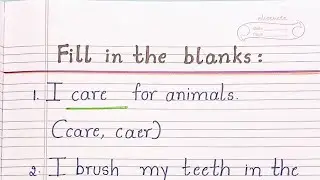 Fill in the blanks:
1. I care for animals.
(care, caer)
2. I brush my teeth in the